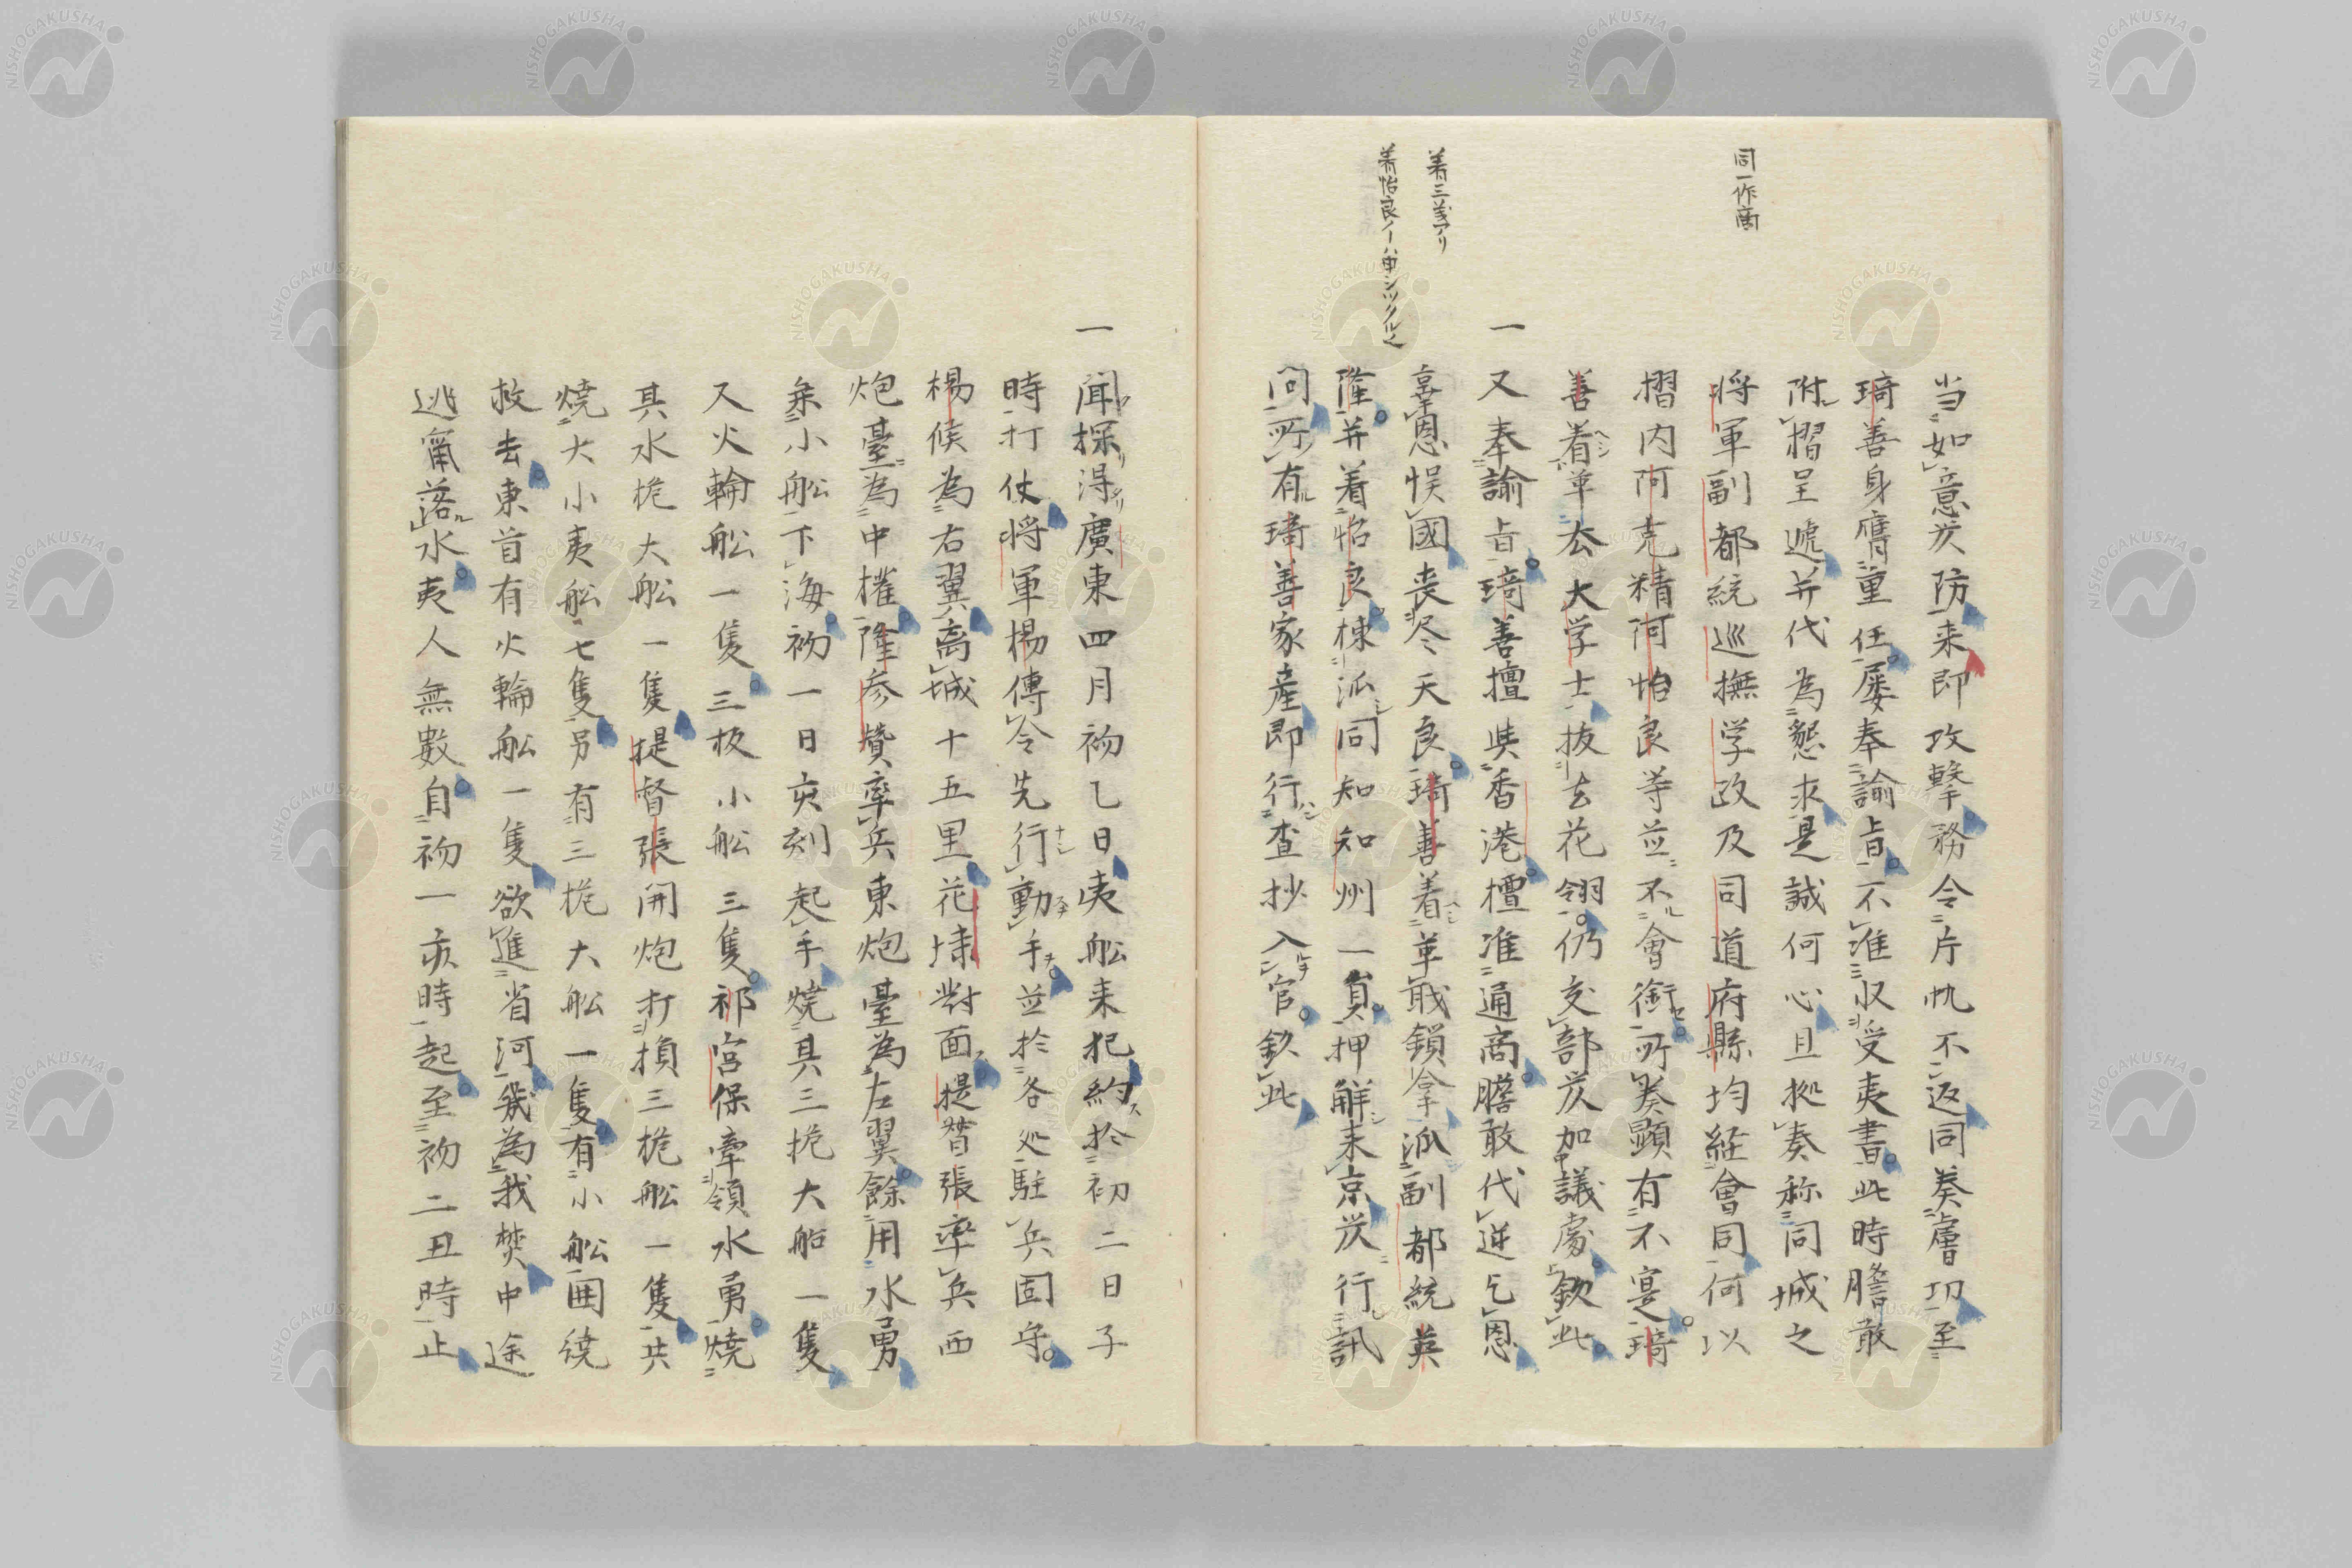 同一作商
着三義アリ
着怡良ノーハ申シツクル也
当如意炭防来即攻撃務令片帆不返同奏膚功至
琦善身膺重任屡奉諭旨不准収受夷書此時膽敢
附摺呈遞并代為懇求是誠何心且拠奏称同城之
将軍副都統巡撫学政及司道府縣均経會同何以
摺内阿克精阿怡良等並不會銜所奏顕有不寔琦
善着革去大学士抜去花翎仍交部炭加議處欽此
一又奉諭旨琦善擅與香港檀准通商膽敢代逆乞恩
辜恩悞國喪尽天良琦善着革職鎖拿派副都統英
隆并着怡良棟派同知知州一員押解来京炭行訊
問所有琦善家産即行査抄入官欽此
一聞探得廣東四月初乙日夷船来犯約於初二日子
時打仗将軍楊傳令先行動手並於各処駐兵固守
楊候為右翼离城十五里花埭對面提督張率兵西
炮臺為中権隆参賛率兵東炮臺為左翼餘用水勇
乗小船下海初一日亥刻起手焼其三桅大船一隻
又火輪船一隻三板小船三隻祁宮保牽領水勇焼
其水桅大船一隻提督張開炮打損三桅船一隻共
焼大小夷船七隻另有三桅大船一隻有小船囲繞
救去東首有火輪船一隻欲進省河我為我焚中途
逃竄落水夷人無數自初一亥時起至初二丑時止